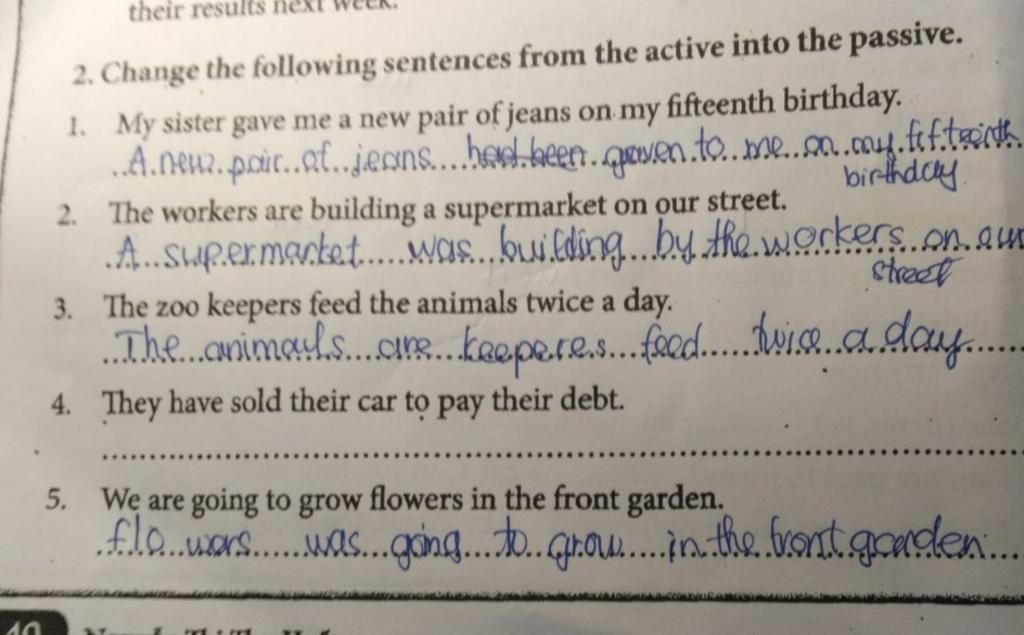 their results next week.
2. Change the following sentences from the active into the passive.
1. My sister gave me a new pair of jeans on my fifteenth birthday.
A new pair of jeans had been given to me on my fifteeinth
birthday.
2. The workers are building a supermarket on our street.
A supermarket was building by the workers on our
street
3. The zoo keepers feed the animals twice a day.
The animals are keeperes feed twice a day
4. They have sold their car to pay their debt.
5. We are going to grow flowers in the front garden.
flo wers was going to grow in the front garden